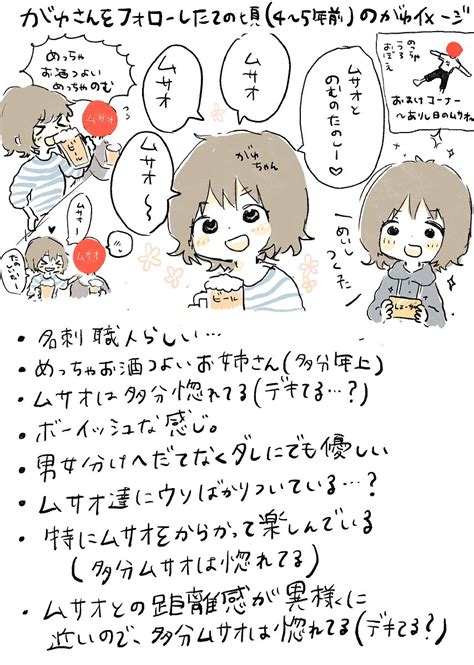 がゅさんをフォローしたての頃(4~5年前)のがゅイメージ
めっちゃ
お酒つよい
めっちゃのむ
ムサオ
ムサオ
ムサオ〜
ムサオと
のむのたのしー♡
がゅ
ちゃん
めっちゃ
うろ
おぼえ
おまけコーナー
〜ありし日のムサオ〜
ムサオ
ムサオ〜
ムサオ
たのしいねー
ビール
めいし
つくった
・名刺職人らしい…
・めっちゃお酒つよいお姉さん(多分年上)
・ムサオは多分惚れてる(デキてる…?)
・ボーイッシュな感じ。
・男女分けへだてなくダレにでも優しい
・ムサオ達にウソばかりついている…?
・特にムサオをからかって楽しんでいる
(多分ムサオは惚れてる)
・ムサオとの距離感が異様に
近いので、多分ムサオは惚れてる(デキてる?)